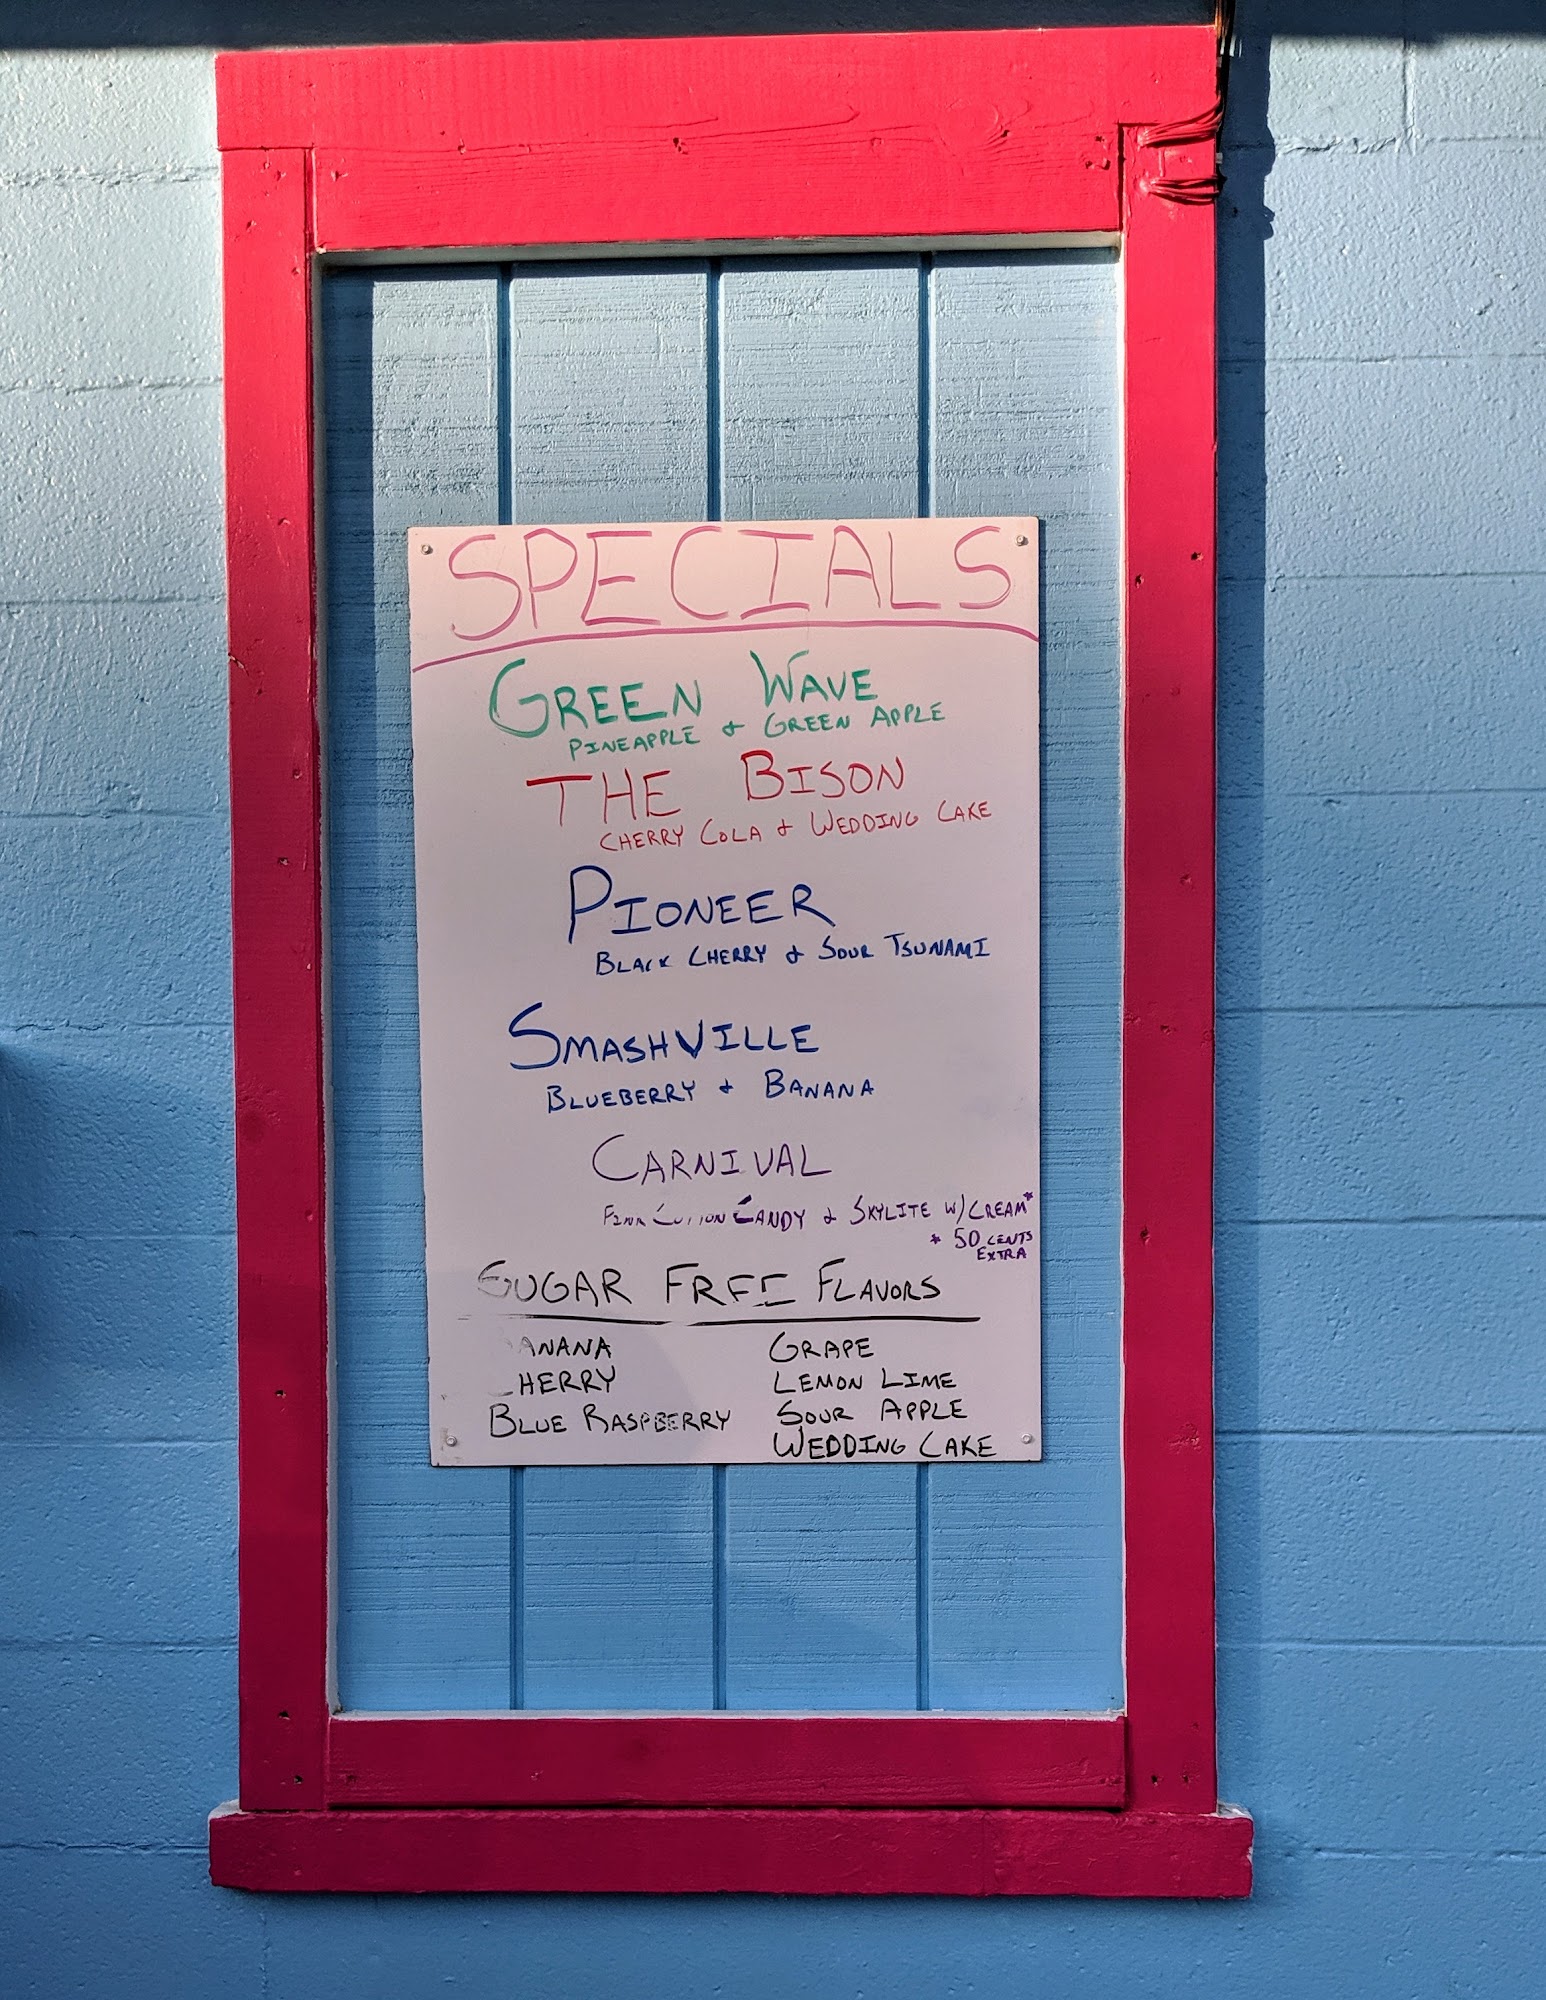 SPECIALS
GREEN WAVE
PINEAPPLE & GREEN APPLE
THE BISON
CHERRY COLA & WEDDING CAKE
PIONEER
BLACK CHERRY & SOUR TSUNAMI
SMASHVILLE
BLUEBERRY & BANANA
CARNIVAL
PINK COTTON CANDY & SKYLITE W/CREAM*
* 50 CENTS
EXTRA
SUGAR FREE FLAVORS
ANANA
HERRY
BLUE RASPBERRY
GRAPE
LEMON LIME
SOUR APPLE
WEDDING CAKE